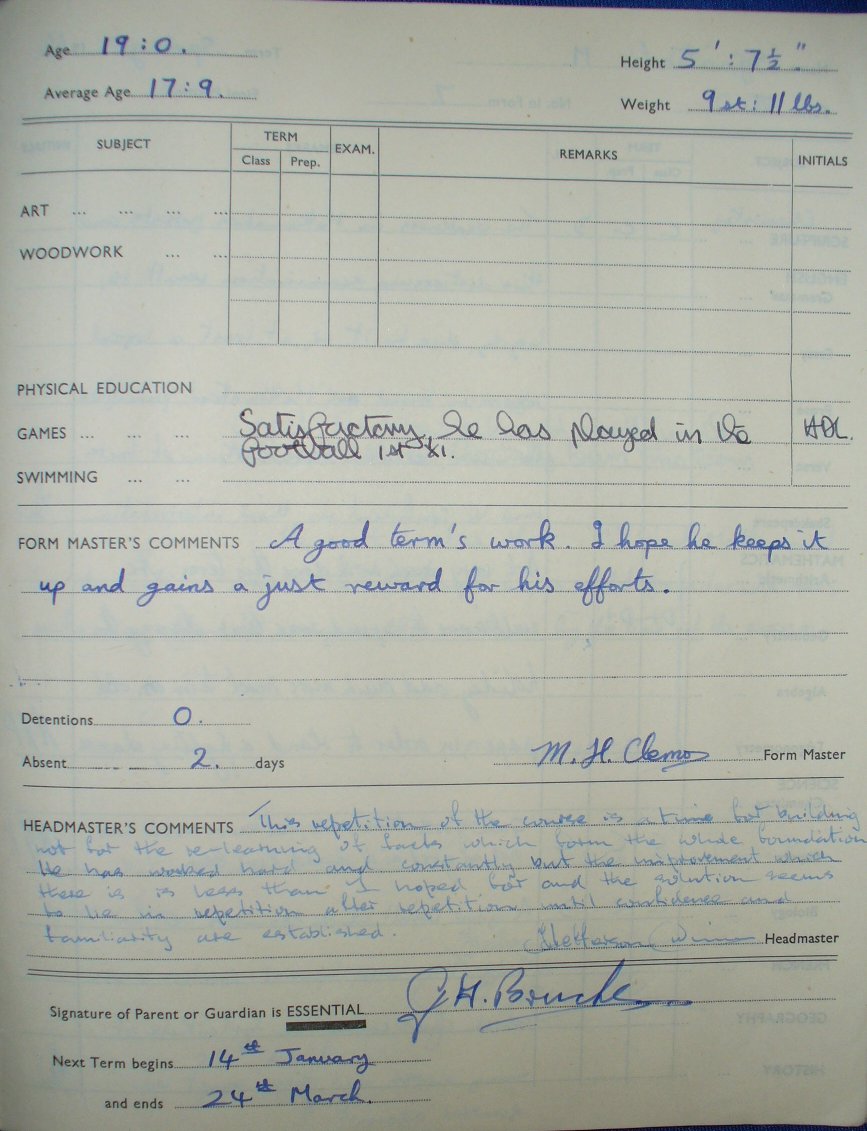 Age 19:0. Height 5':7½"
Average Age 17:9. Weight 9st: 11 lbs.
SUBJECT TERM EXAM. REMARKS INITIALS
Class Prep.
ART ... ... ... ...
WOODWORK ... ...
PHYSICAL EDUCATION
GAMES ... ... ... Satisfactory, he has played in the HDL.
football 1st XI.
SWIMMING ... ...
FORM MASTER'S COMMENTS A good term's work. I hope he keeps it
up and gains a just reward for his efforts.
Detentions 0.
Absent 2. days M. H. Clemo Form Master
HEADMASTER'S COMMENTS This repetition of the course is a time for building
not for the re-learning of facts which form the whole foundation
He has worked hard and constantly but the improvement which
there is is less than I hoped for and the solution seems
to lie in repetition after repetition until confidence and
familiarity are established.
Headmaster
Signature of Parent or Guardian is ESSENTIAL G. H.
Next Term begins 14th January
and ends 24th March.